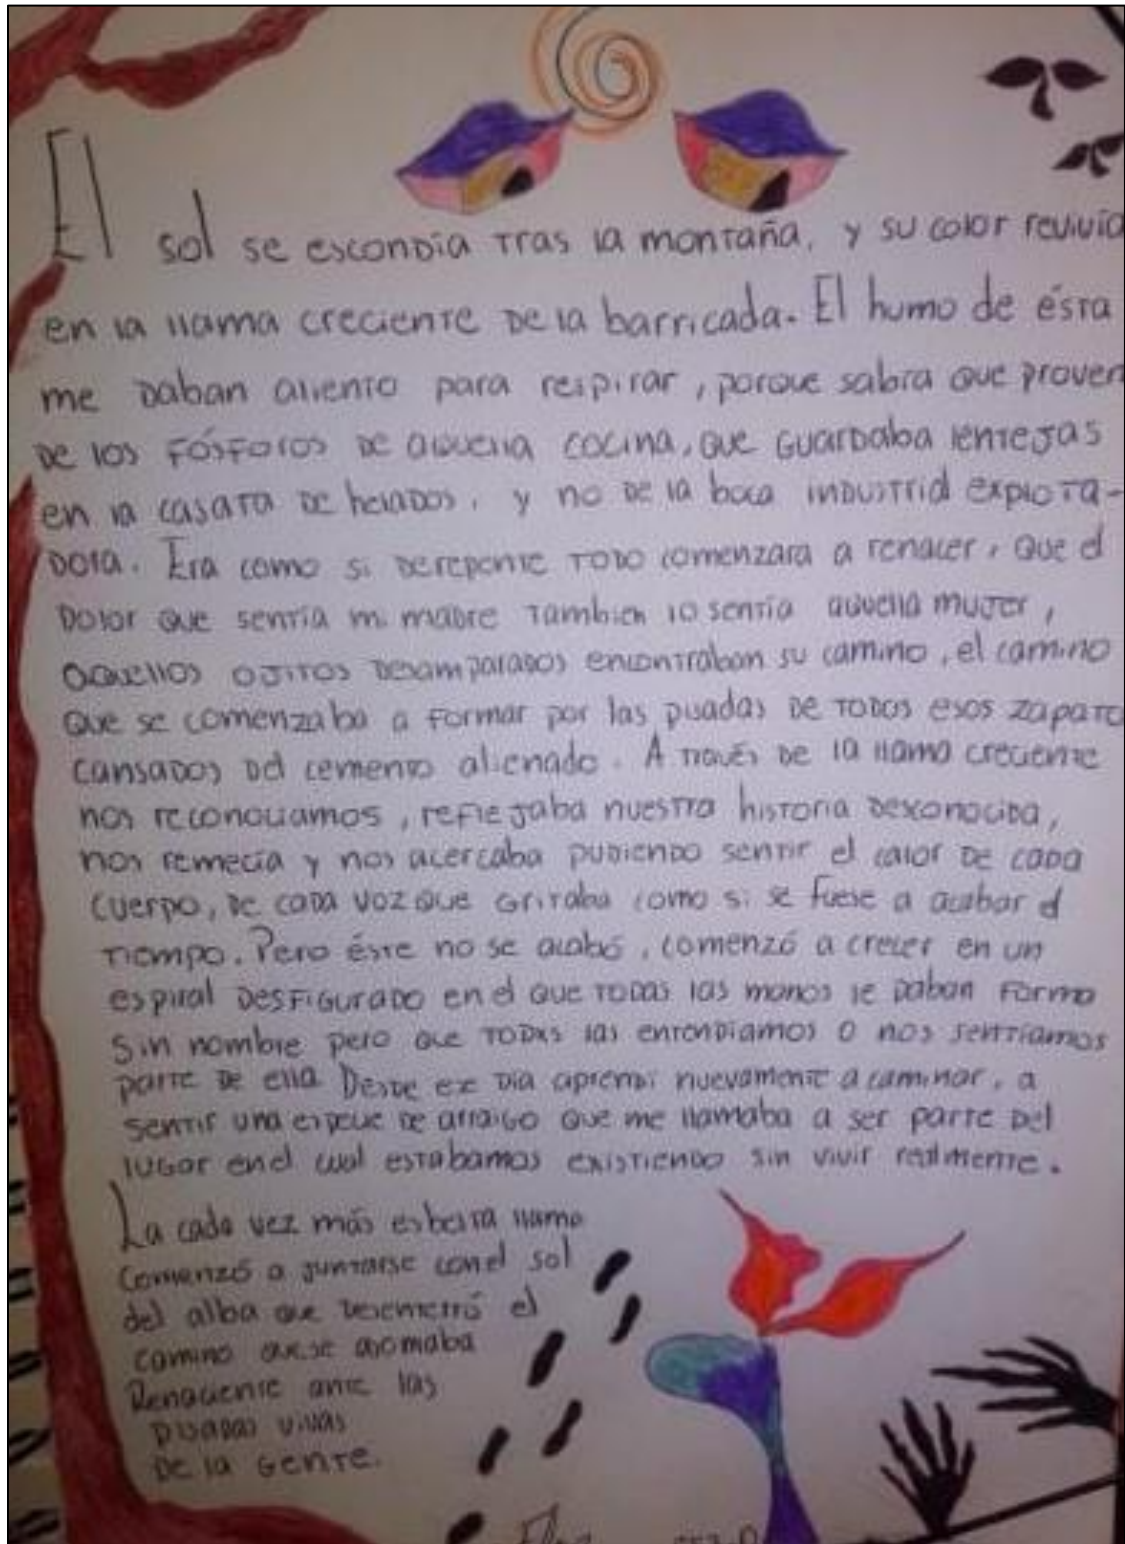 El sol se escondía tras la montaña, y su color revivía
en la llama creciente de la barricada. El humo de ésta
me daban aliento para respirar, porque sabía que proven
de los fósforos de aquella cocina, que guardaba lentejas
en la casata de helados, y no de la boca industrial explota-
dora. Era como si derepente todo comenzara a renacer, que el
dolor que sentía mi madre tambien lo sentía aquella mujer,
aquellos ojitos desamparados encontraban su camino, el camino
que se comenzaba a formar por las pisadas de todos esos zapato
cansados del cemento alienado. A través de la llama creciente
nos reconociamos, reflejaba nuestra historia desconocida,
nos remecía y nos acercaba pudiendo sentir el calor de cada
cuerpo, de cada voz que gritaba como si se fuese a acabar el
tiempo. Pero éste no se acabó, comenzó a crecer en un
espiral desfigurado en el que todas las manos le daban forma
sin nombre pero que todxs las entendiamos o nos sentíamos
parte de ella. Desde ese día aprendí nuevamente a caminar, a
sentir una especie de arraigo que me llamaba a ser parte del
lugar en el cual estabamos existiendo sin vivir realmente.
La cada vez más esbelta llama
comenzó a juntarse con el sol
del alba que desenterró el
camino que se asomaba
Renaciente ante las
pisadas vivas
de la gente.